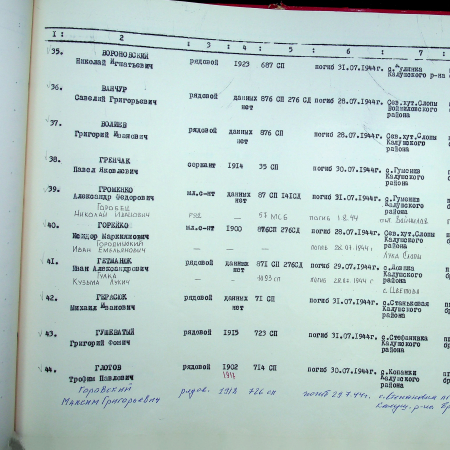 1: 2 : 3 : 4 : 5 : 6 : 7 :
35. ВОРОНОВСКИЙ
Николай Игнатьевич рядовой 1923 687 СП погиб 31.07.1944г. Калушского р-на
36. ВАНЧУР
Савелий Григорьевич рядовой данных нет 876 СП 276 СД погиб 28.07.1944г. Сев.хут.Слопы Войниловского района
37. ВОЛЯЕВ
Григорий Иванович рядовой данных нет 876 СП погиб 28.07.1944г. Сев.хут.Слопы Калушского района
38. ГРЕНЧАК
Павел Яковлевич сержант 1914 35 СП погиб 30.07.1944г. с.Гумения Калушского района
39. ГРОМЕНКО
Александр Федорович мл.с-нт данных нет 87 СП 141СД погиб 31.07.1944г. с.Гумения Калушского района
Горобец
Николай ряд — 57 МСБ погиб
40. ГОРЕЙКО
Маркиянович мл.с-нт 1900 876СП 276СД погиб 28.07.1944г. Сев.хут.Слопы Калушского района
Городинский
Иван Емельянович — — — погиб 28.07.1944г.
41. ГЕТМАНЮК
Иван Александрович рядовой данных нет 871 СП 276СД погиб 29.07.1944г. Калушского района
Гулка
Кузьма Лукич — — погиб 28.07.1944 г с.Цветова
42. ГЕРАСЮК
Михаил Иванович рядовой данных нет 71 СП погиб 31.07.1944г. с.Станькова Калушского района
43. ГУЛЕВАТЫЙ
Григорий Фомич рядовой 1915 723 СП погиб 31.07.1944г. с.Стефанивка Калушского района
44. ГЛОТОВ
Трофим Павлович рядовой 1902 714 СП погиб 30.07.1944г. с.Копанки Калушского района
Горовский
Максим Григорьевич рядов. 1918 726 сп погиб 29.7.44г. Калуш. р-на